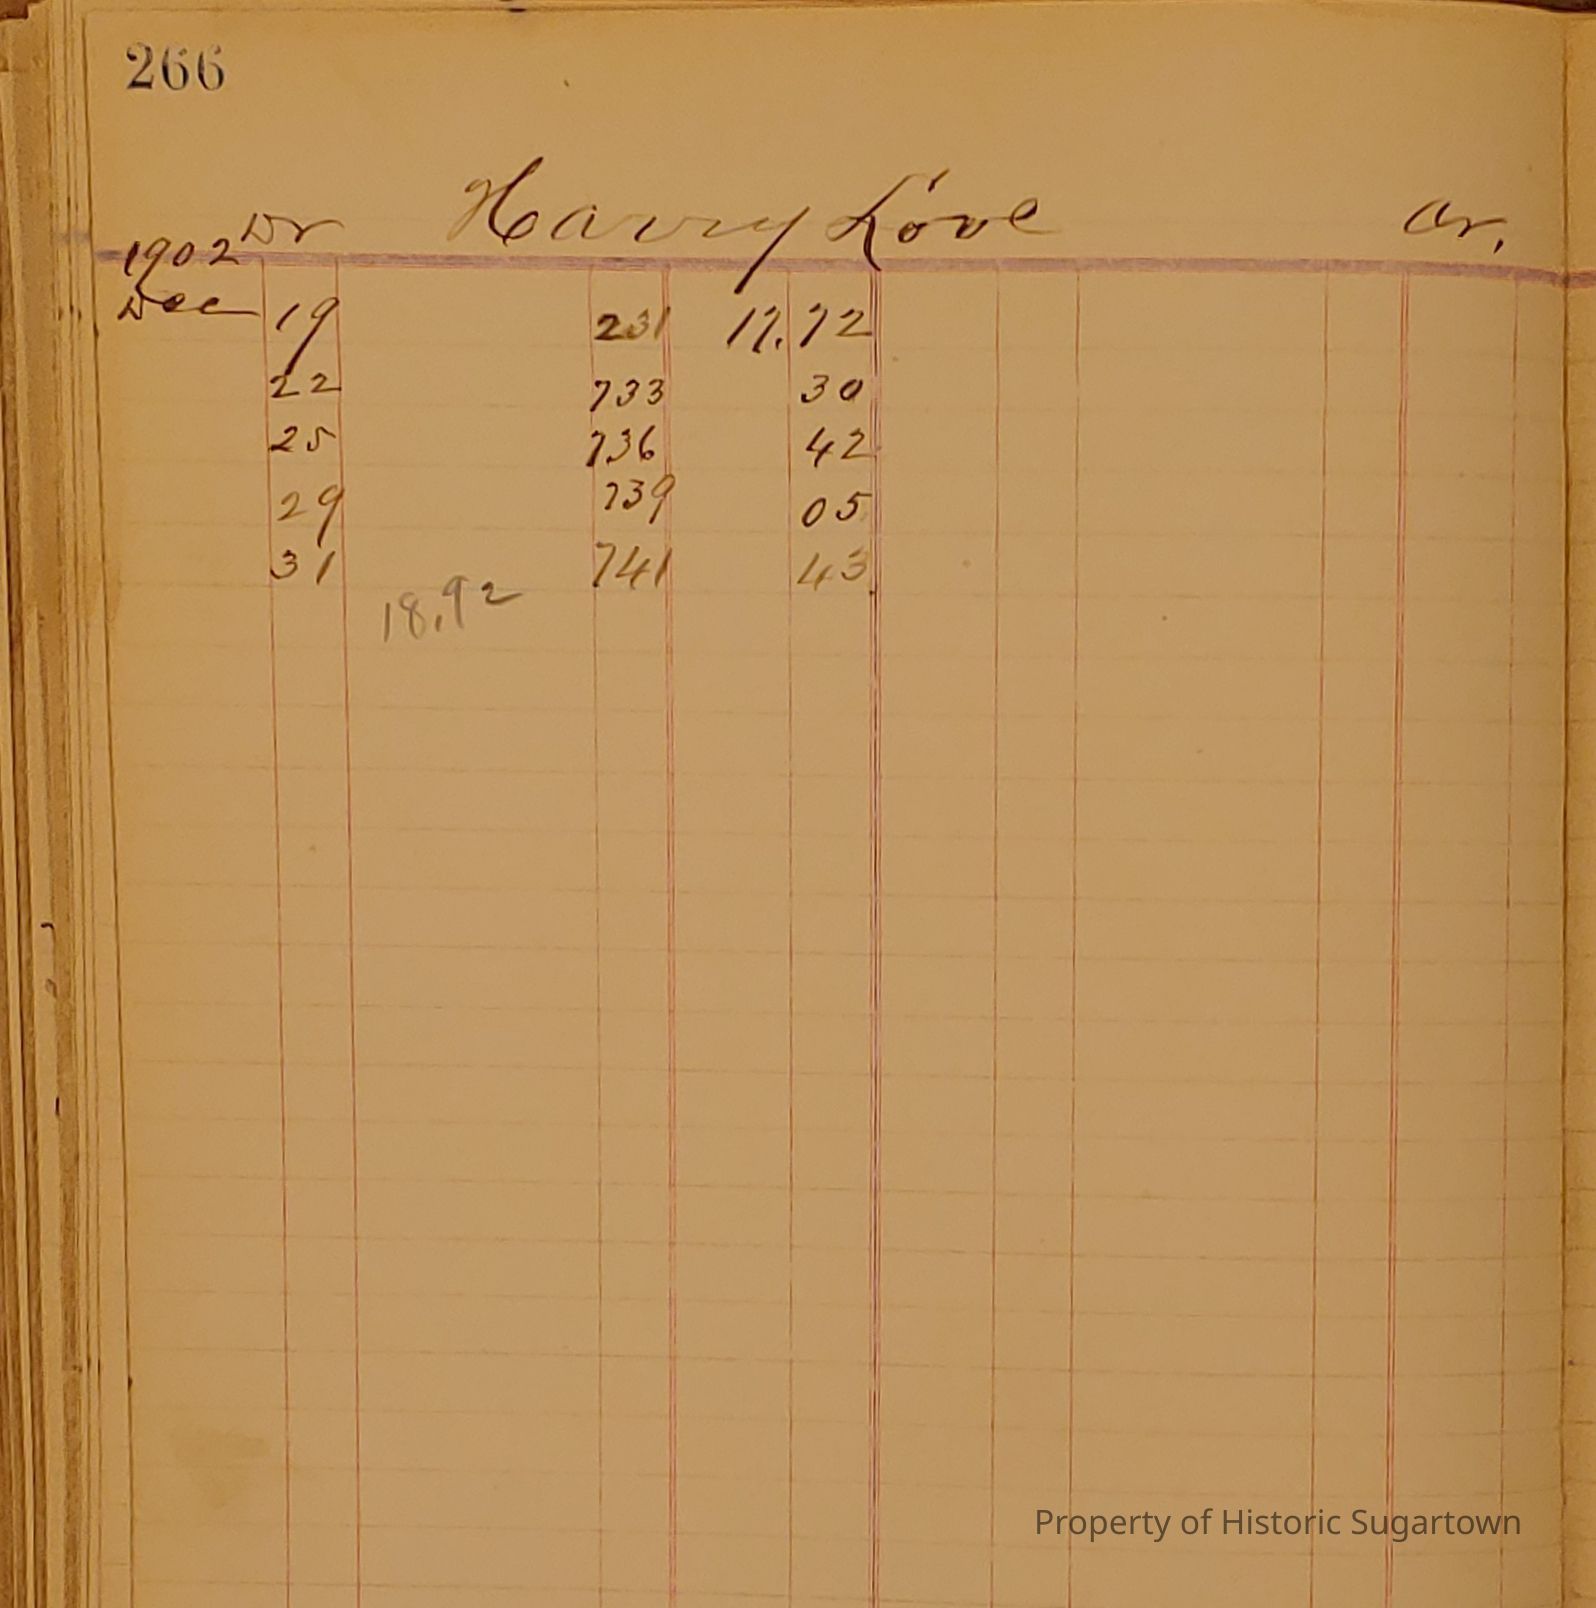 266
Dr Harry Love Cr.
1902
Dec 19 231 17.72
22 733 30
25 736 42
29 739 05
31 741 43
18.92
Property of Historic Sugartown